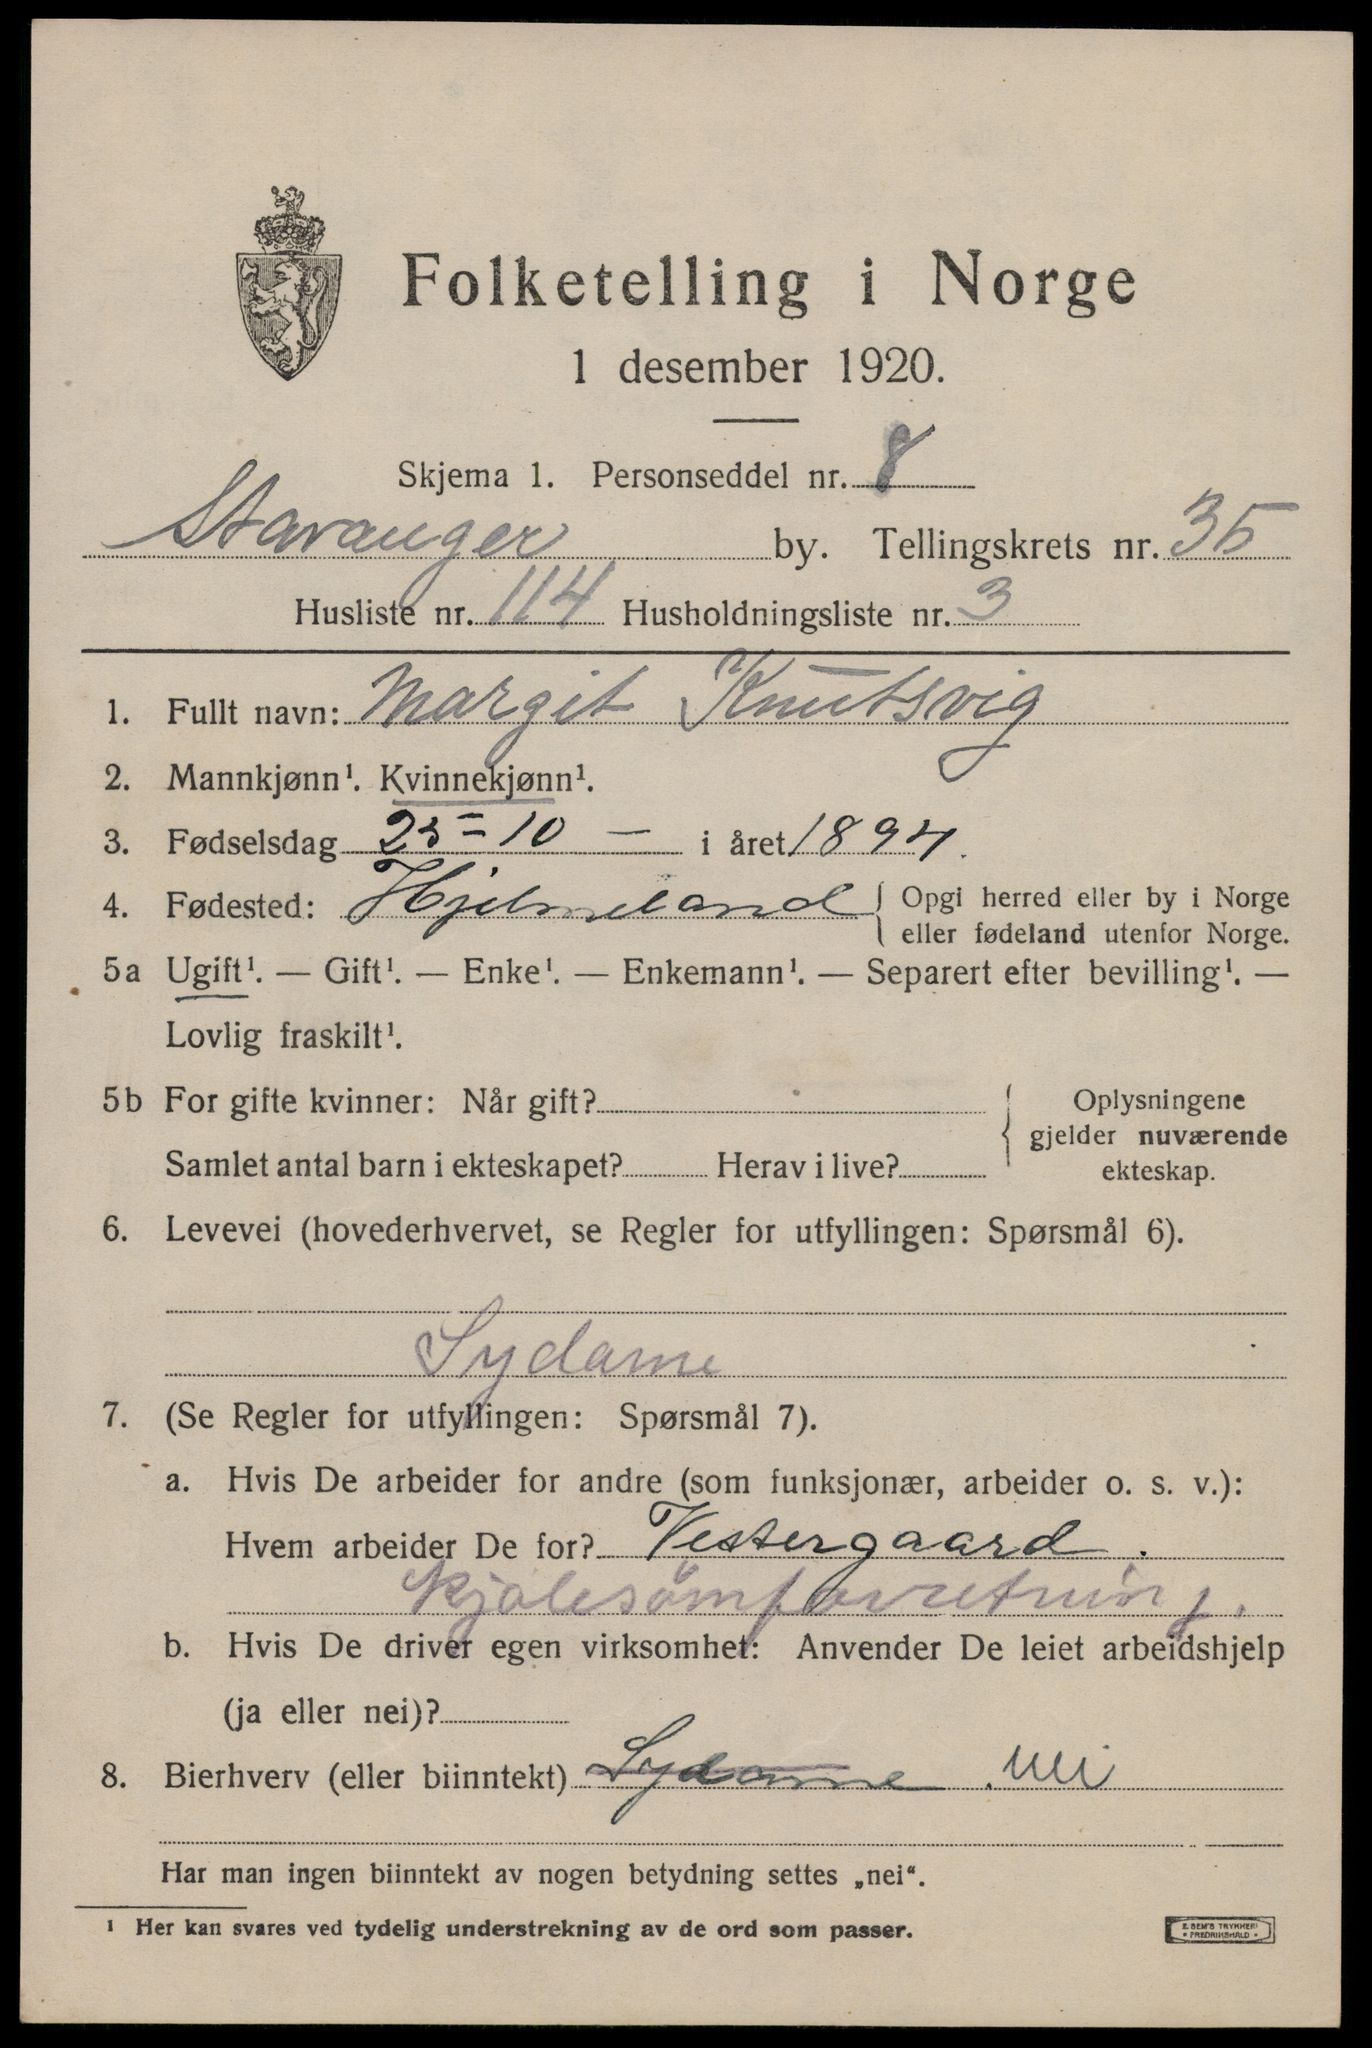 Folketelling i Norge
1 desember 1920.
Skjema 1. Personseddel nr. 8
Stavanger by. Tellingskrets nr. 35
Husliste nr. 114 Husholdningsliste nr. 3
1. Fullt navn: Margit Knutsvig
2. Mannkjønn¹. Kvinnekjønn¹.
3. Fødselsdag 25-10 — i året 1894.
4. Fødested: Hjelmeland { Opgi herred eller by i Norge
eller fødeland utenfor Norge.
5a Ugift¹. — Gift¹. — Enke¹. — Enkemann¹. — Separert efter bevilling¹. —
Lovlig fraskilt¹.
5b For gifte kvinner: Når gift? { Oplysningene
gjelder nuværende
Samlet antal barn i ekteskapet? Herav i live?
ekteskap.
6. Levevei (hovederhvervet, se Regler for utfyllingen: Spørsmål 6).
Sydame
7. (Se Regler for utfyllingen: Spørsmål 7).
a. Hvis De arbeider for andre (som funksjonær, arbeider o. s. v.):
Hvem arbeider De for? Vestergaard.
Kjolesömforretning.
b. Hvis De driver egen virksomhet: Anvender De leiet arbeidshjelp
(ja eller nei)?
8. Bierhverv (eller biinntekt) Sydame . Nei
Har man ingen biinntekt av nogen betydning settes „nei“.
1 Her kan svares ved tydelig understrekning av de ord som passer.
E. SEM'S TRYKKERI
• FREDRIKSHALD •